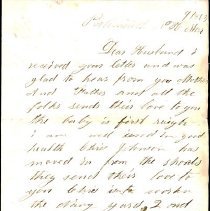 Dear Husband I
received your letter and was
glad to hear from you Mother
and Father and all the
folks sends their love to you
the baby is first
I am and in good
health Chris Johnson has
moved in from the
they send their love to
you Chris
the yard I and